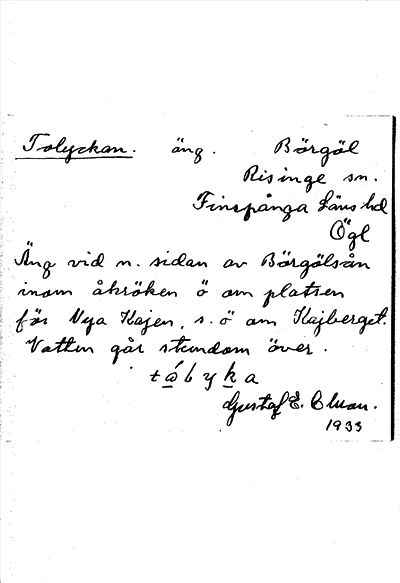 Tolyckan. äng. Börgöl
Risinge sn.
Finspånga läns hd
Ögl
Äng vid n. sidan av Börgölsån
inom åkröken ö om platsen
för Nya Kajen, s.ö om Kajberget.
Vatten går stundom över.
Gustaf E.
1933